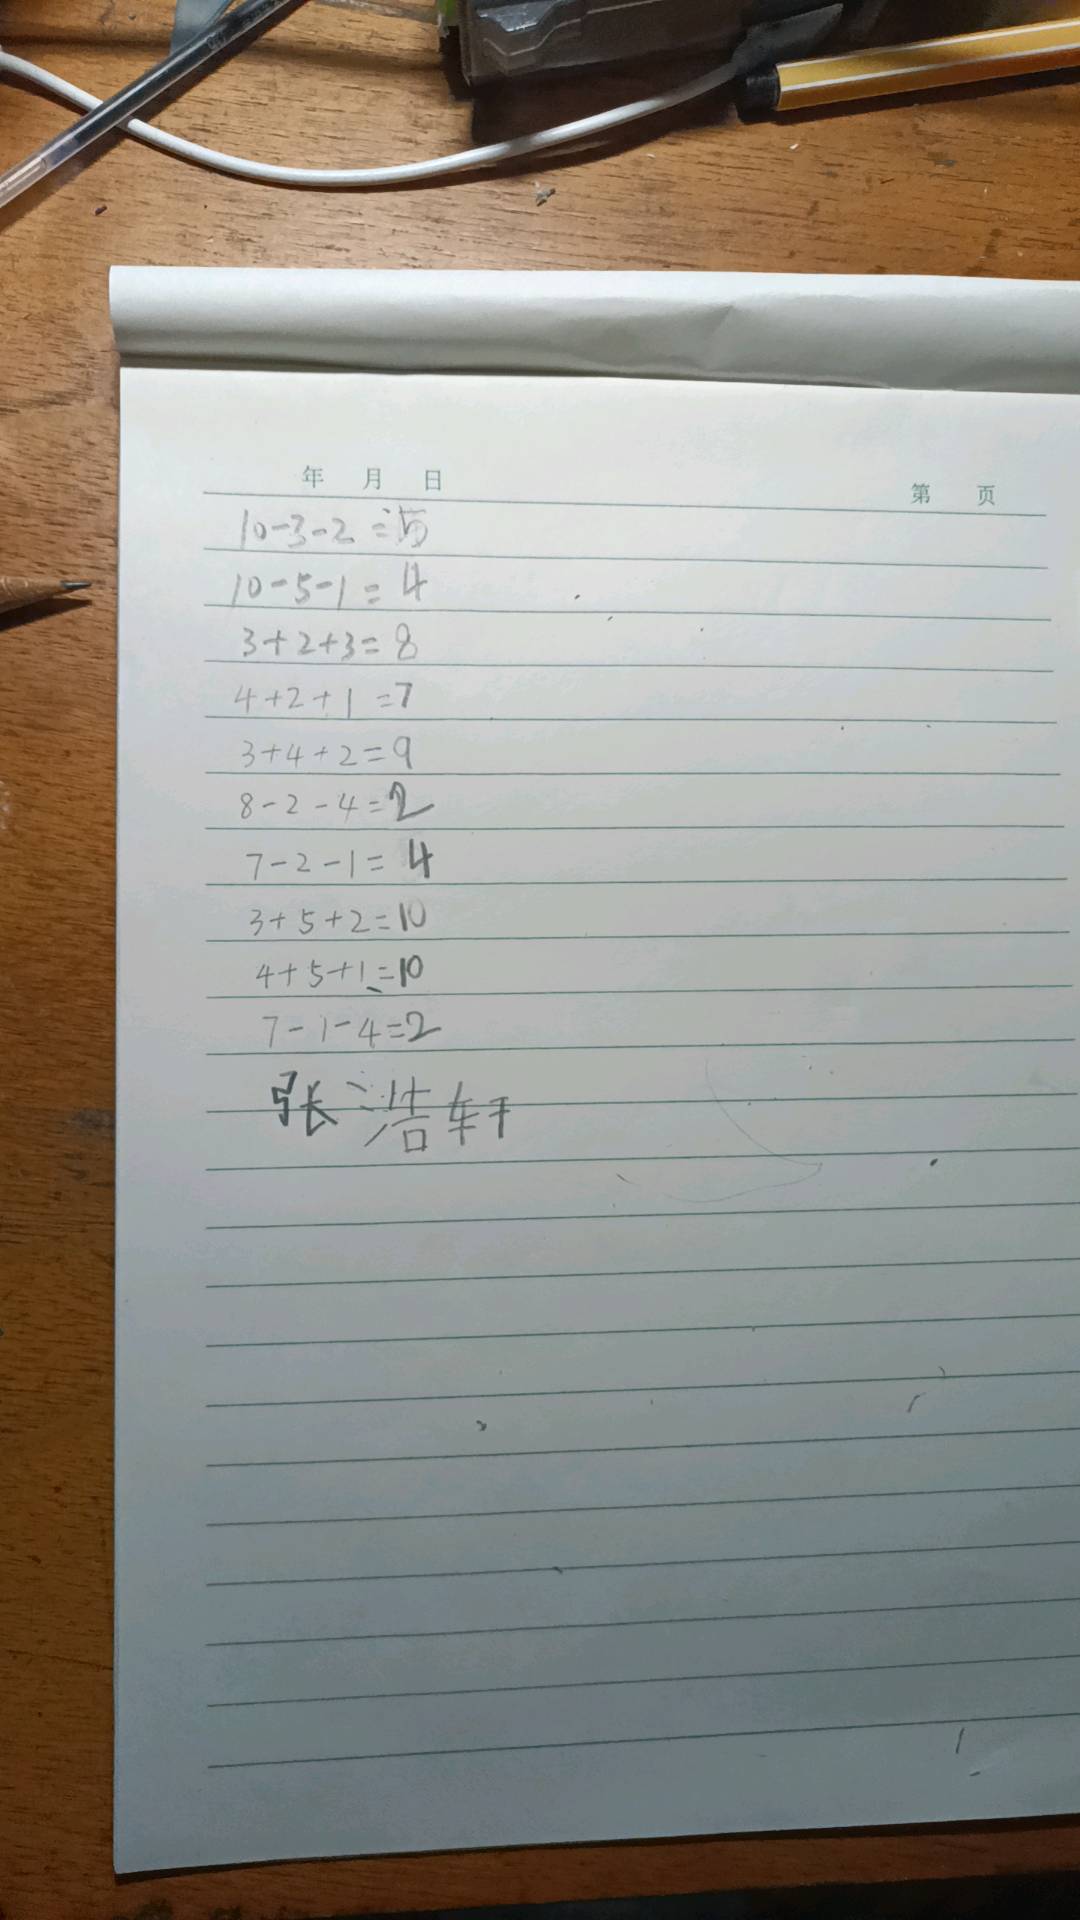 年 月 日 第 页
10-3-2=5
10-5-1=4
3+2+3=8
4+2+1=7
3+4+2=9
8-2-4=2
7-2-1=4
3+5+2=10
4+5+1=10
7-1-4=2
张浩轩